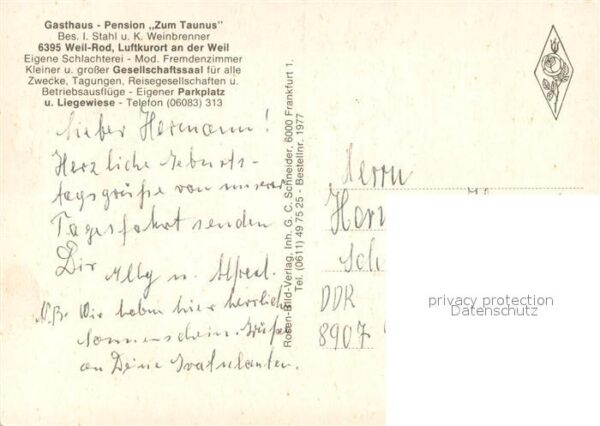 Gasthaus - Pension „Zum Taunus"
Bes. I. Stahl u. K. Weinbrenner
6395 Weil-Rod, Luftkurort an der Weil
Eigene Schlachterei - Mod. Fremdenzimmer
Kleiner u. großer Gesellschaftssaal für alle
Zwecke, Tagungen, Reisegesellschaften u.
Betriebsausflüge - Eigener Parkplatz
u. Liegewiese - Telefon (06083) 313
Lieber Hermann!
Herzliche Geburts-
tagsgrüße von unserer
Tagesfahrt senden
Dir Ally u. Alfred.
N.B. Wir haben hier herrlich
Sonnenschein. Grüße
an Deine Gratulanten.
Rosen-Bild-Verlag, Inh. G. C. Schneider, 6000 Frankfurt 1.
Tel. (0611) 49 75 25 - Bestellnr. 1977
Herrn
Her
Sch
DDR
8907
privacy protection
Datenschutz